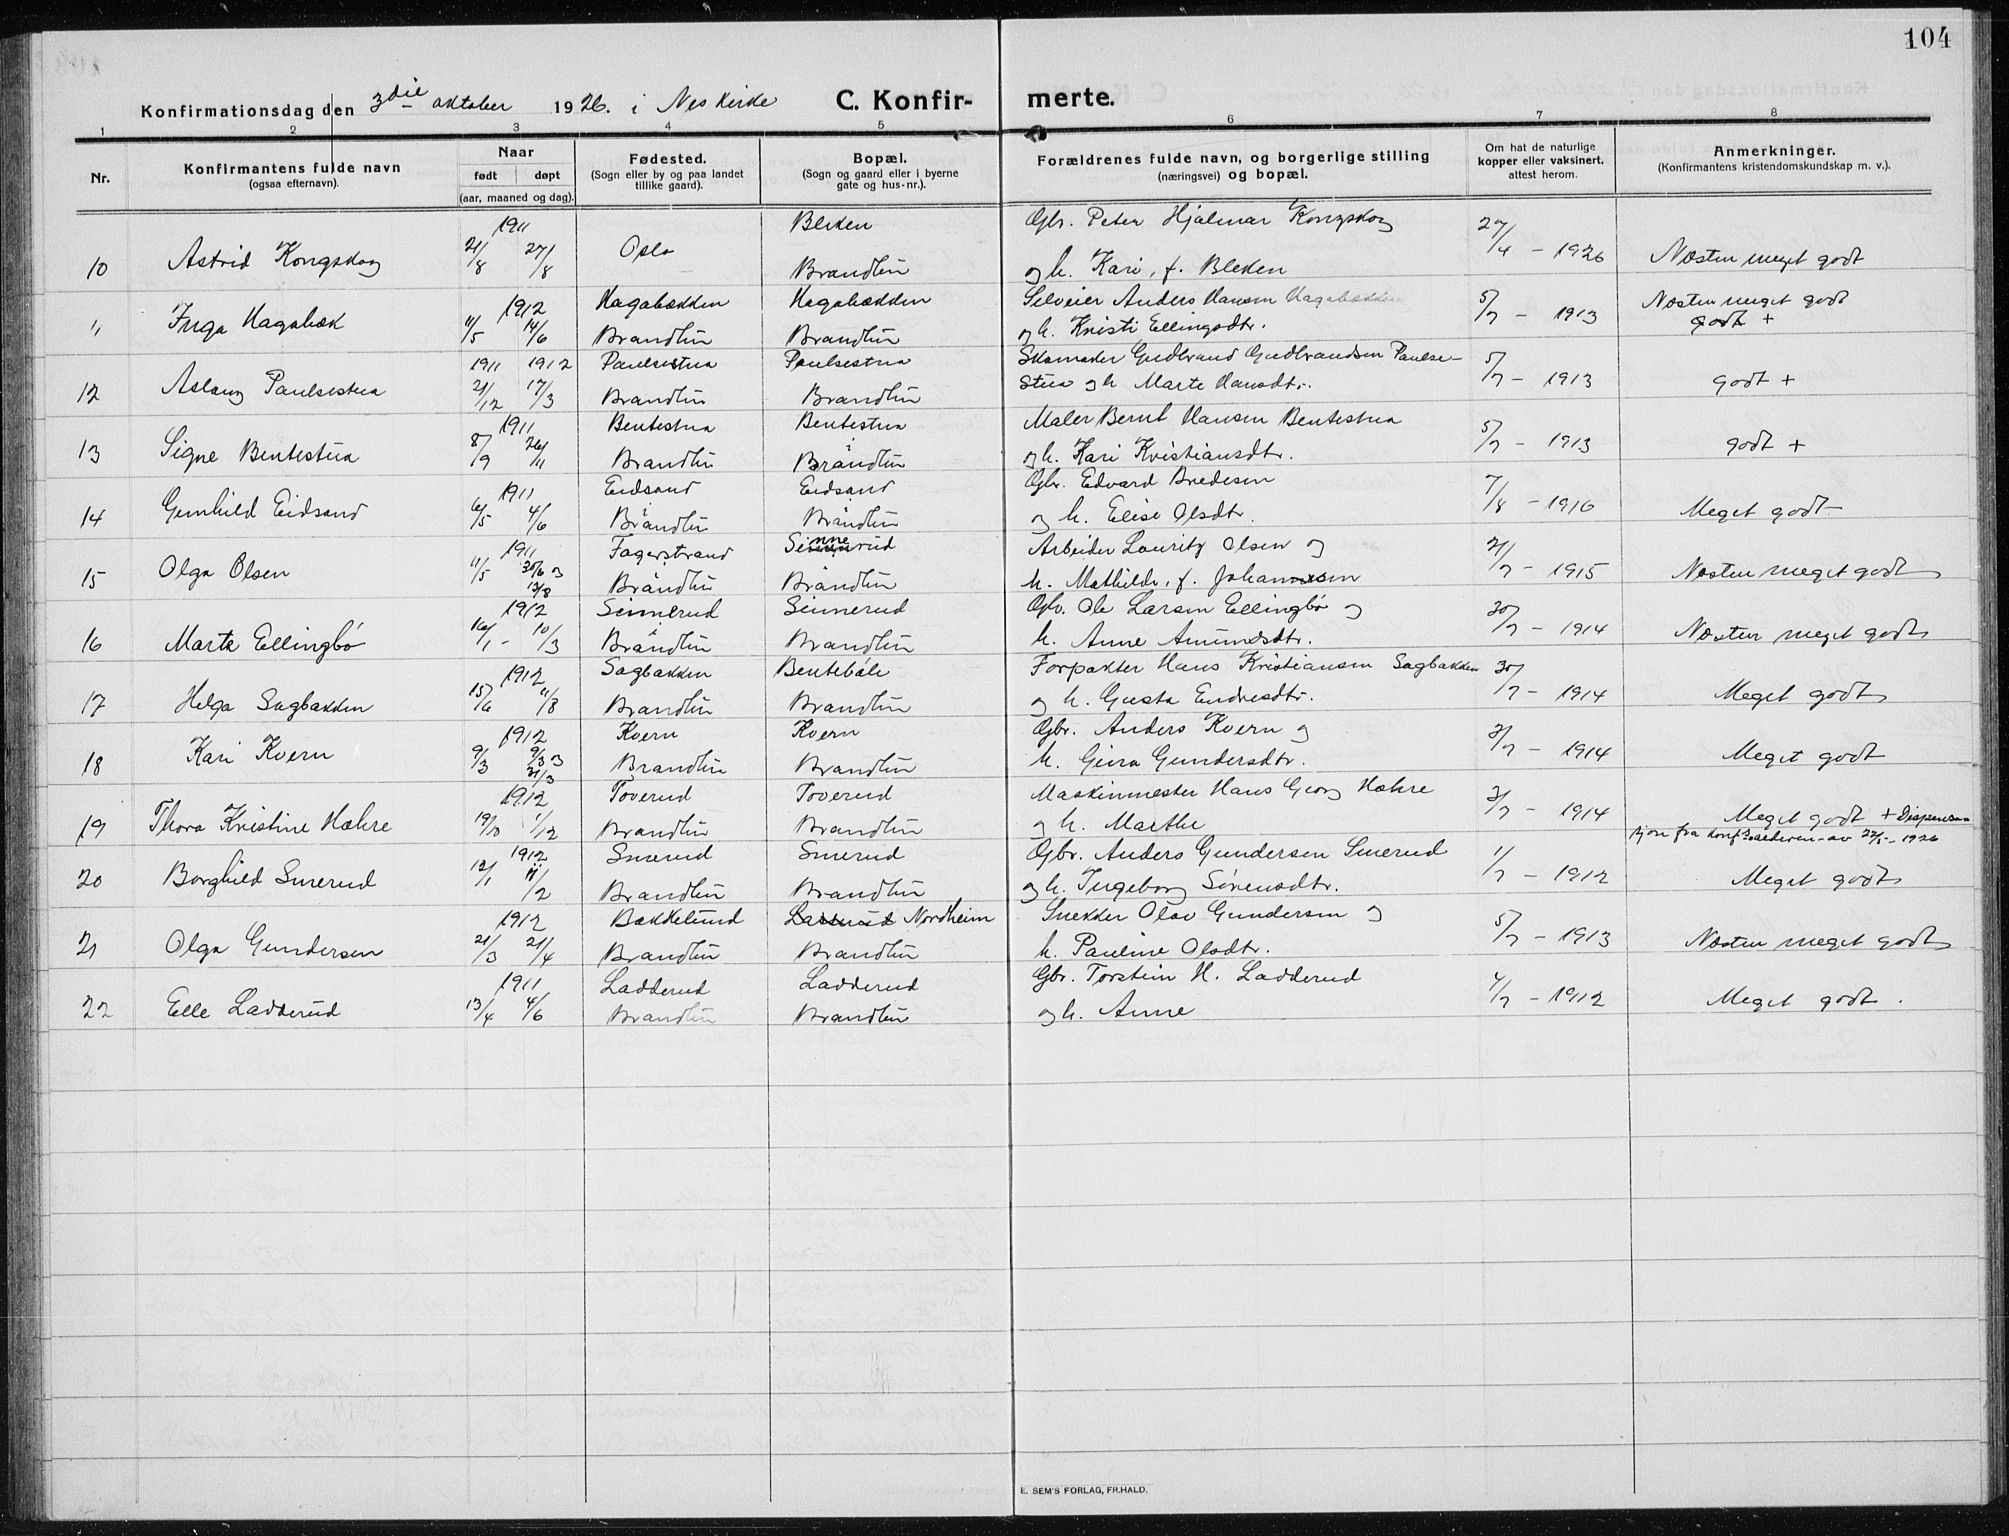 104
Konfirmationsdag den 3die oktober 1926. i Nes kirke C. Konfirmerte.
1 2 3 4 5 6 7 8
Nr. Konfirmantens fulde navn (ogsaa efternavn). Naar født døpt (aar, maaned og dag). Fødested. (Sogn eller by og paa landet tillike gaard). Bopæl. (Sogn og gaard eller i byerne gate og hus-nr.). Forældrenes fulde navn, og borgerlige stilling (næringsvei) og bopæl. Om hat de naturlige kopper eller vaksinert, attest herom. Anmerkninger. (Konfirmantens kristendomskundskap m. v.).
1911 Bleken Gbr. Peter Hjalmar Kongskog
10 Astrid Kongskog 21/8 27/8 Oslo Brandbu og h. Kari, f. Bleken 27/4 - 1926 Næsten meget godt
1912 Hagabækken Hagabækken Selveier Anders Hansen Hagabækken Næsten meget godt
11 Inga Hagabæk 11/5 14/6 Brandbu Brandbu og h. Kristi Ellingsdtr. 5/7 - 1913 godt +
1911 1912 Paulsestua Paulsestua Skomaker Gudbrand Gudbrandsen Paulse-
12 Aslaug Paulsestua 21/12 17/3 Brandbu Brandbu stua og h Marte Hansdtr. 5/7 - 1913 godt +
1911 Bentestua Bentestua Maler Bernt Hansen Bentestua
13 Signe Bentestua 8/9 26/11 Brandbu Brandbu og h. Kari Kristiansdtr. 5/7 - 1913 godt +
1911 Eidsand Eidsand Gbr. Edvard Bredesen
14 Gunhild Eidsand 6/5 4/6 Brandbu Brandbu og h. Elise Olsdtr. 7/8 - 1916 Meget godt
1911 Fagerstrand Sinnerud Arbeider Lauritz Olsen og
15 Olga Olsen 11/5 30/6 og 13/8 Brandbu Brandbu h. Mathilde, f. Johannesen 21/7 - 1915 Næsten meget godt
1912 Sinnerud Sinnerud Gbr. Ole Larsen Ellingbø og
16 Marta Ellingbø 16/1 - 10/3 Brandbu Brandbu h. Anne Amundsdtr. 30/7 - 1914 Næsten meget godt
1912 Sagbakken Bentebøle Forpakter Hans Kristiansen Sagbakken
17 Helga Sagbakken 15/6 11/8 Brandbu Brandbu og h. Gusta Endresdtr. 30/7 - 1914 Meget godt
1912 Kvern Kvern Gbr. Anders Kvern og
18 Kari Kvern 9/3 9/3 og 31/3 Brandbu Brandbu h. Gina Gundersdtr. 3/7 - 1914 Meget godt
1912 Toverud Toverud Maskinmester Hans Georg Hæhre
19 Thora Kristine Hæhre 19/10 1/12 Brandbu Brandbu og h. Marthe 3/7 - 1914 Meget godt + Dispensa-
sjon fra konf.alderen av 27/5 - 1926
1912 Smerud Smerud Gbr. Anders Gundersen Smerud
20 Borghild Smerud 12/1 11/2 Brandbu Brandbu og h. Ingeborg Sørensdtr. 1/7 - 1912 Meget godt
1912 Bækkelund Nordheim Snekker Olav Gundersen og
21 Olga Gundersen 21/3 21/4 Brandbu Brandbu h. Pauline Olsdtr. 5/7 - 1913 Næsten meget godt
1911 Ladderud Ladderud Gbr. Torstein H. Ladderud
22 Elle Ladderud 13/4 4/6 Brandbu Brandbu og h. Anne 4/7 - 1912 Meget godt.
E. SEM'S FORLAG, FR.HALD.